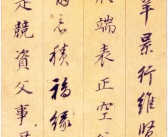 羊景行維賢
端表正空谷
因惡積福緣
是競資父事